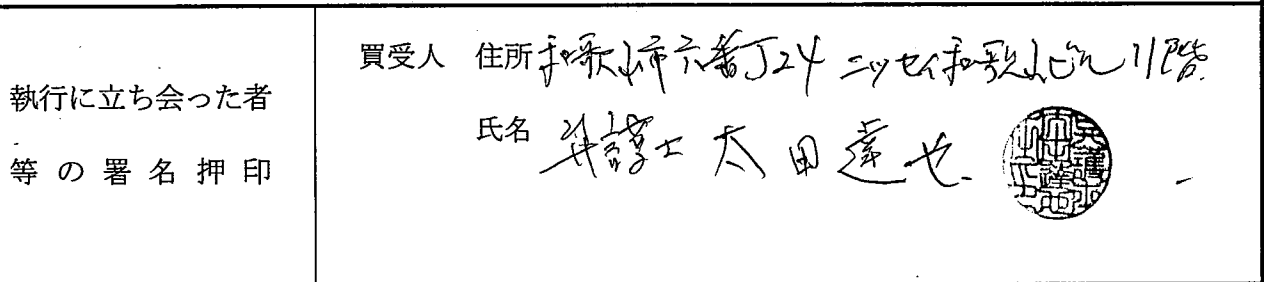 執行に立ち会った者
等の署名押印
買受人 住所 和歌山市六番丁24 ニッセイ和歌山ビル11階
氏名 弁護士 太田達也